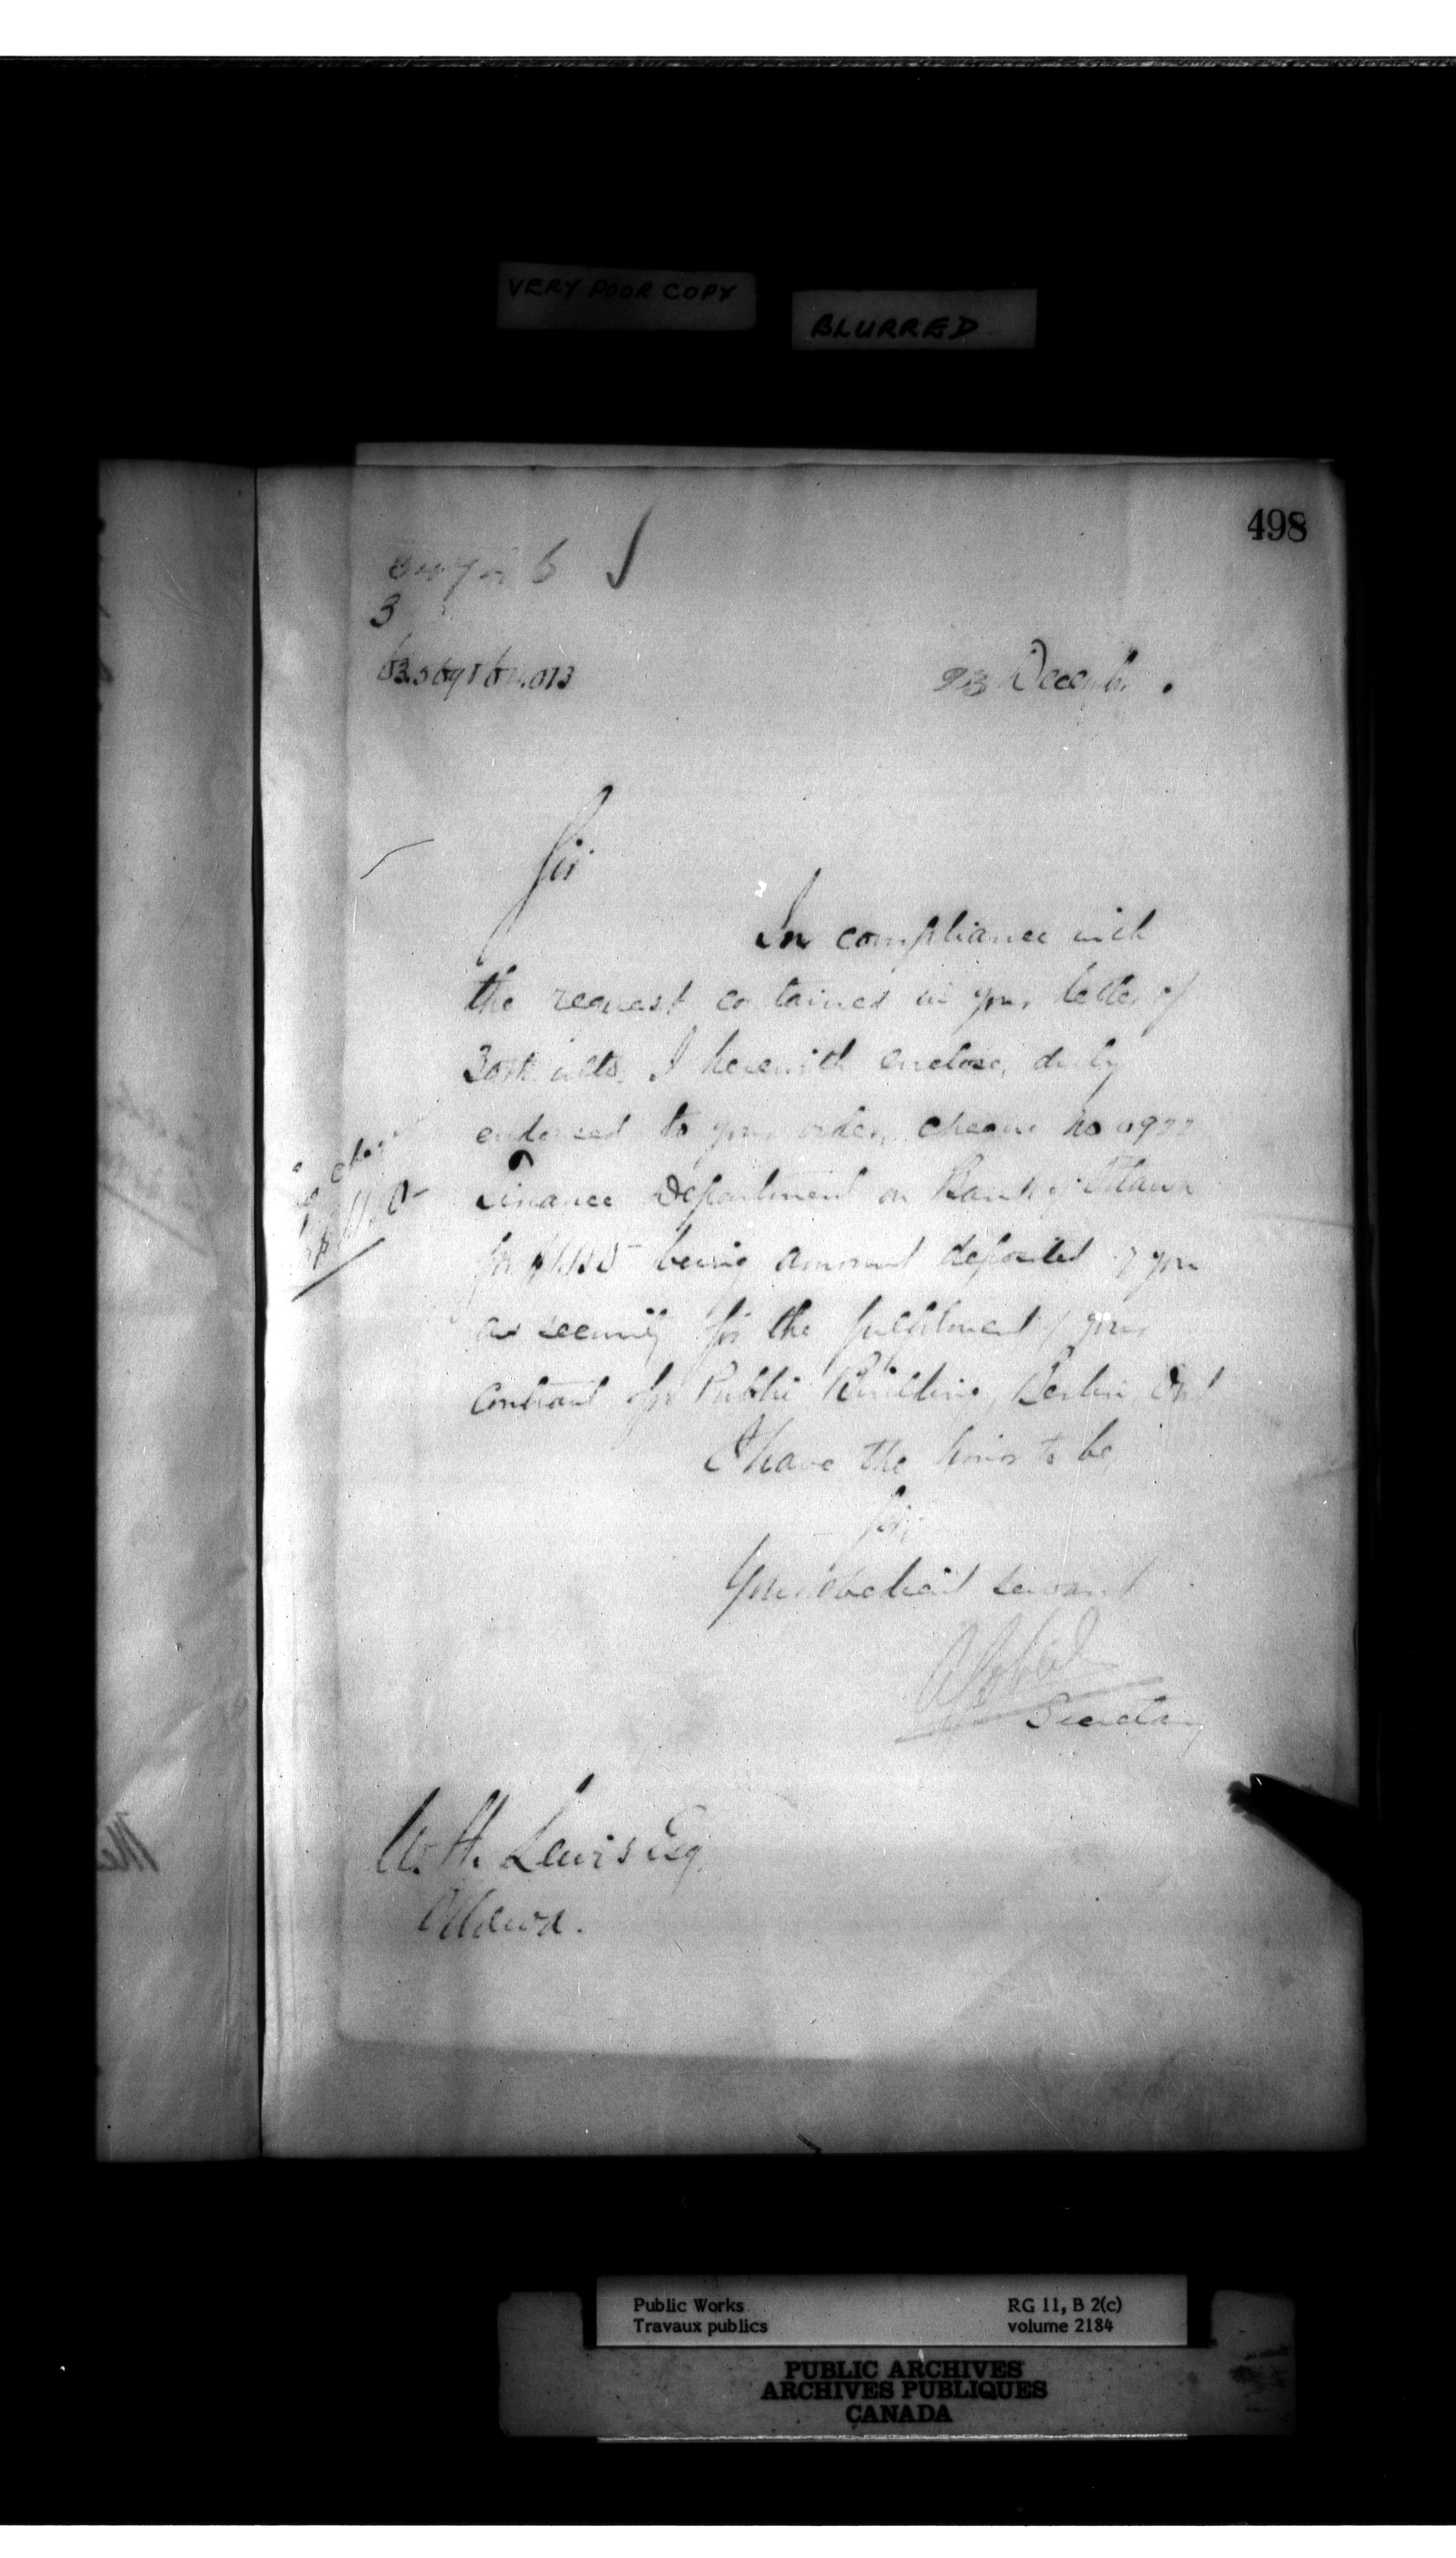 VERY POOR COPY
BLURRED
498
3
23 Decemb.
Sir
In compliance with
the request contained in your letter of
30th ulto. I herewith enclose, duly
endorsed to your order, cheque no
Finance Department on Bank of Ottawa
for being amount deposited by you
as security for the fulfilment of your
contract for Public Building, Berlin, Ont
I have the honor to be,
Sir,
Your obedient servant
Secretary
W. H. Lewis Esq.
Ottawa.
Public Works
Travaux publics
RG 11, B 2(c)
volume 2184
PUBLIC ARCHIVES
ARCHIVES PUBLIQUES
CANADA